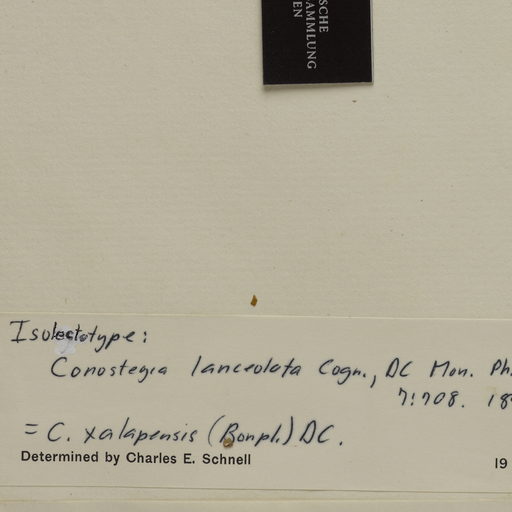 SCHE
AMMLUNG
EN
Isolectotype:
Conostegia lanceolata Cogn., DC Mon. Ph
7:708. 18
= C. xalapensis (Bonpl.) DC.
Determined by Charles E. Schnell 19